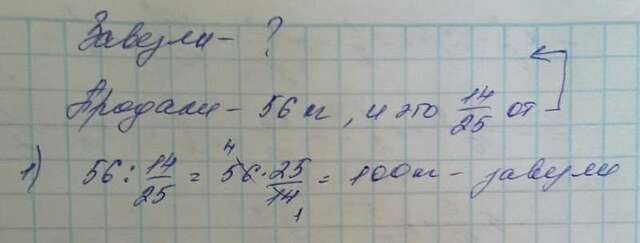 Завезли - ?
Продали - 56 кг, и это 14/25 от
1) 56 : 14/25 = 56 · 25/14 = 100 кг - завезли